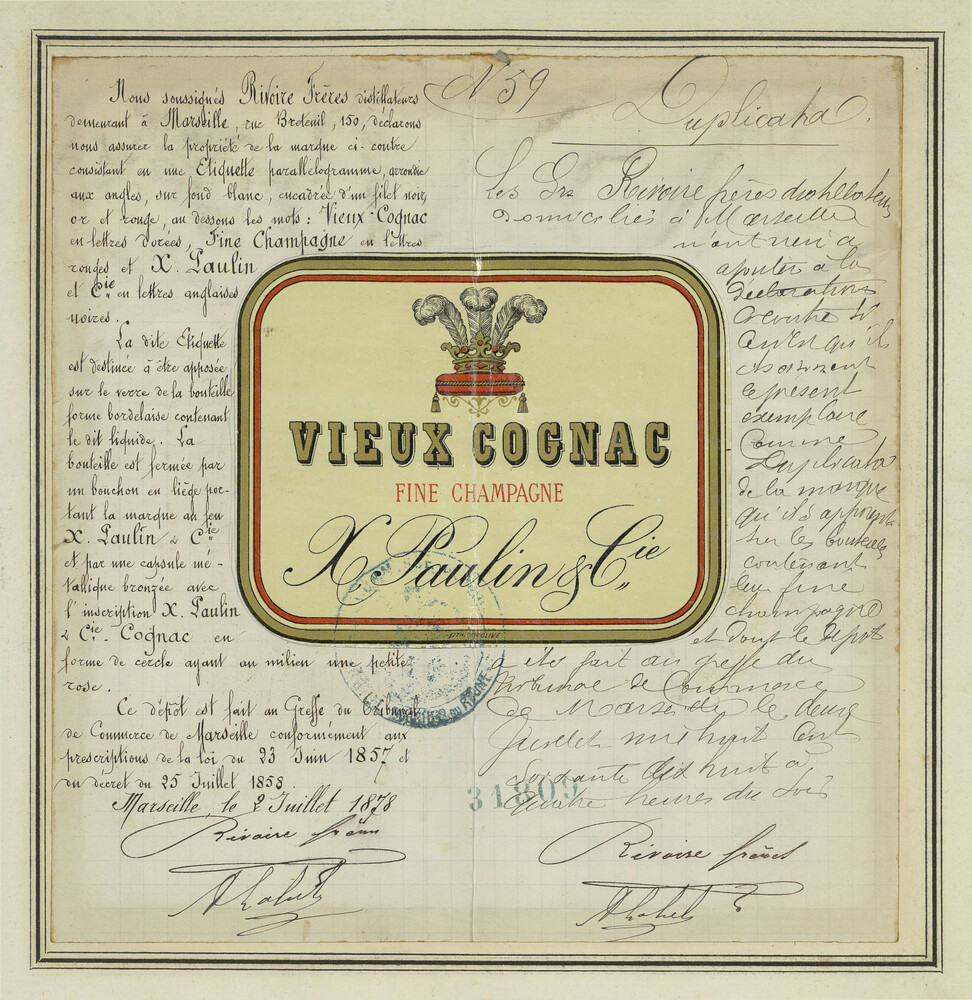 Nous soussignés Rivoire Frères distillateurs
demeurant à Marseille, rue Breteuil, 150, déclarons
nous assurer la propriété de la marque ci-contre
consistant en une Etiquette parallélogramme, arrondie
aux angles, sur fond blanc, encadrée d'un filet noir,
or et rouge, au dessous les mots: Vieux-Cognac
en lettres dorées, Fine Champagne en lettres
rouges et X. Paulin
et Cie en lettres anglaises
noires.
La dite Etiquette
est destinée à être apposée
sur le verre de la bouteille
forme bordelaise contenant
le dit liquide. La
bouteille est fermée par
un bouchon en liège por-
tant la marque au feu
X. Paulin & Cie
et par une capsule mé-
tallique bronzée avec
l'inscription X. Paulin
& Cie. Cognac en
forme de cercle ayant au milieu une petite
rose.
Ce dépôt est fait au Greffe du Tribunal
de Commerce de Marseille conformément aux
prescriptions de la loi du 23 Juin 1857 et
du décret du 25 Juillet 1858
Marseille, le 2 Juillet 1878
Rivoire frères
N 59
Duplicata.
Les Srs Rivoire frères distillateurs
domiciliés à Marseille
n'ont rien à
ajouter à la
déclaration
ci contre si
ce n'est qu'ils
le présent
exemplaire
comme
Duplicata
de la marque
qu'ils apposent
sur les bouteilles
contenant
leur fine
champagne
et dont le dépôt
a été fait au greffe du
tribunal de Commerce
de Marseille le deux
Juillet mil huit cent
soixante dix huit à
quatre heures du soir
31809
Rivoire frères
VIEUX COGNAC
FINE CHAMPAGNE
X. Paulin & Cie